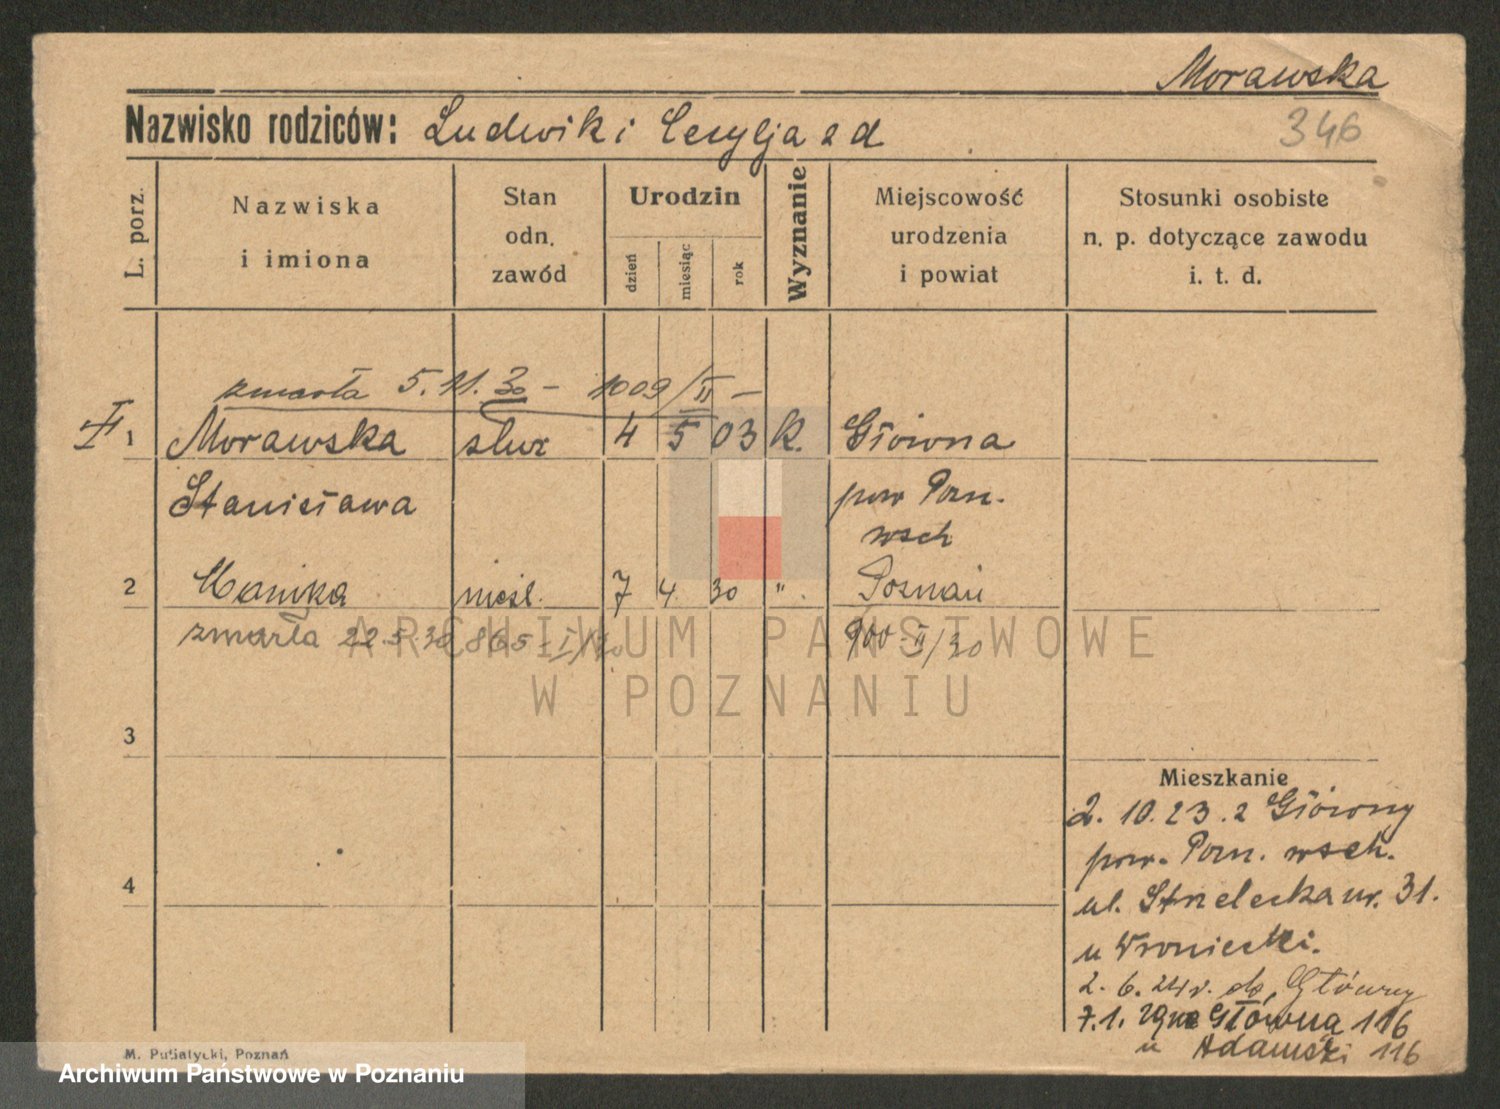 Morawska
346
Nazwisko rodziców: Ludwik i Cecylja z d
L. porz.
Nazwiska
i imiona
Stan
odn.
zawód
Urodzin
dzień
miesiąc
rok
Wyznanie
Miejscowość
urodzenia
i powiat
Stosunki osobiste
n. p. dotyczące zawodu
i. t. d.
zmarła 5.11.30 - 1009/II -
1 Morawska służ 4 5 03 k. Główna
Stanisława pow Pozn.
wsch
2 Monika nieśl. 7 4 30 " . Poznań
zmarła 22.5.30 865-I/30 900-II/30
ARCHIWUM PAŃSTWOWE
W POZNANIU
3
4
Mieszkanie
2. 10. 23. z Główny
pow. Pozn. wsch.
ul. Strzelecka nr. 31.
u Wroniecki.
2. 6. 24 r. do Główny
7. 1. 29 Główna 116
u Adamski 116
M. Putiatycki, Poznań
Archiwum Państwowe w Poznaniu